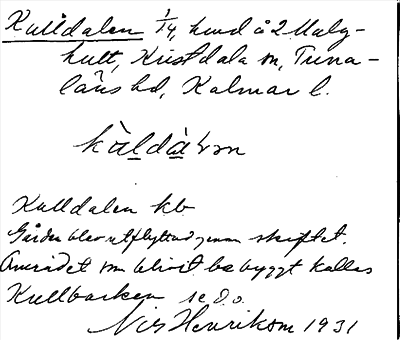 Kulldalen 1/4, hmd å 2 Malg-
hult, Kristdala sn, Tuna-
läns hd, Kalmar l.
Kulldalen kb
Gården blev utflyttad genom skiftet.
Området som blivit bebyggt kallas
Kullbacken se d.o.
Nils Henriksson 1931